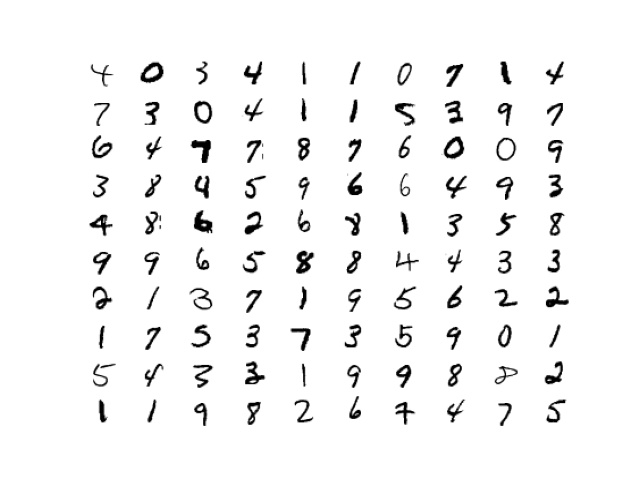 4 0 3 4 1 1 0 7 1 4
7 3 0 4 1 1 5 3 9 7
6 4 7 7 8 7 6 0 0 9
3 8 4 5 9 6 6 4 9 3
4 8 6 2 6 8 1 3 5 8
9 9 6 5 8 8 4 4 3 3
2 1 3 7 1 9 5 6 2 2
1 7 5 3 7 3 5 9 0 1
5 4 3 3 1 9 9 8 8 2
1 1 9 8 2 6 7 4 7 5